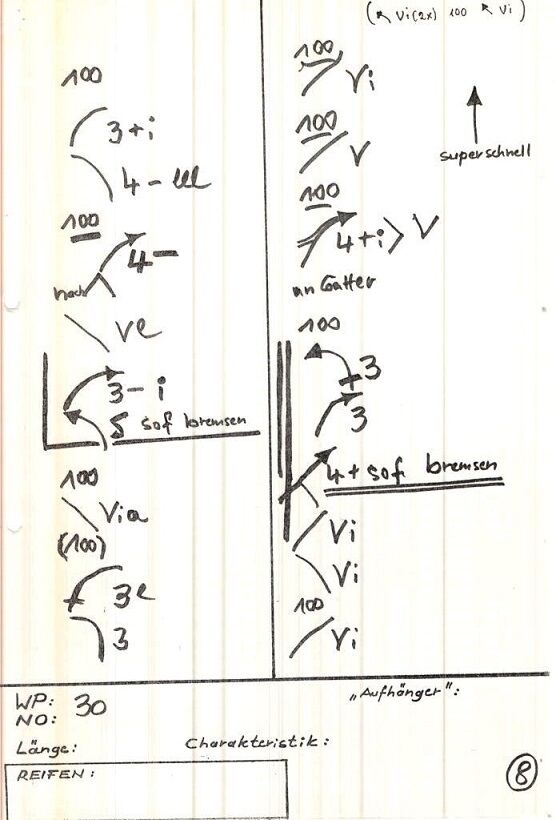 100
3+i
4- lll
100
4-
nach
ve
3- i
5 sof bremsen
100
Via
(100)
3e
3
(↖ Vi(2x) 100 ↖ Vi)
100
Vi
100
V
superschnell
100
4+i > V
an Gatter
100
3
3
4+ sof bremsen
Vi
Vi
100
Vi
WP: 30
NO:
„Aufhänger":
Länge:
Charakteristik:
REIFEN:
8